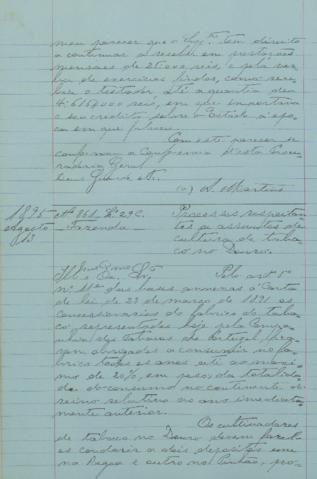 meu parecer que o Supp.te tem direito
a continuar a recebel em prestações
mensaes de 25:000 reis, e pela ver-
ba de exercicios findos, como rece-
bia o testador até a quantia de
4:615:000 reis, em que importava
o seu credito sobre o Estado á epo-
ca em que falleceu.
Com este parecer se
conformou a Conferencia d'esta Procu-
radoria Geral.
Deus Guarde etc.
(a) A. Martins
1895 Nº 861 Lº 29 C. Processos respeitan-
Agosto Fazenda tes a assumptos de
13 cultura de taba-
co no Douro.
Ill.mo e Ex.mo Sr. Pelo artº 5º
nº 1º das bases annexas á Carta
de lei de 23 de março de 1891 os
concessionarios do fabrico do taba-
co, representados hoje pela Compa-
nhia dos Tabacos de Portugal, fica-
ram obrigados a consumir no fa-
brico todos os annos, até ao maxi-
mo de 20%, em peso, da totalida-
de do consumo no continente do
reino relativo ao anno immediata-
mente anterior.
Os cultivadores
de tabaco no Douro devem fazel-
os conduzir a dois depositos um
na Regua e outro no Pinhão, pro-